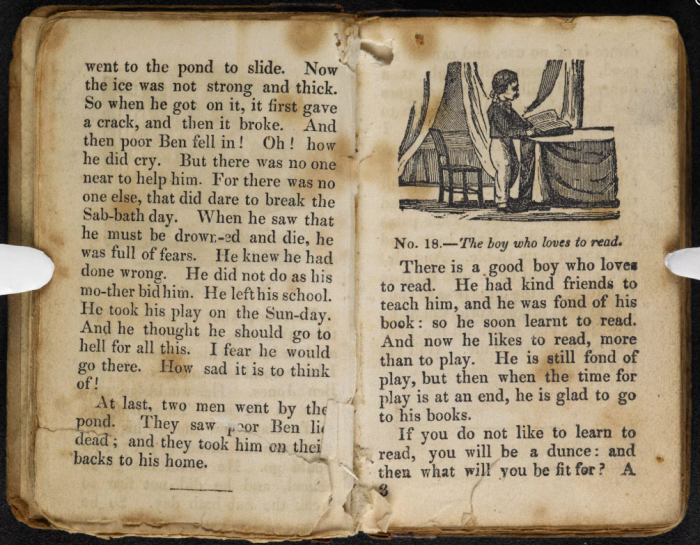 went to the pond to slide. Now
the ice was not strong and thick.
So when he got on it, it first gave
a crack, and then it broke. And
then poor Ben fell in! Oh! how
he did cry. But there was no one
near to help him. For there was no
one else, that did dare to break the
Sab-bath day. When he saw that
he must be drown-ed and die, he
was full of fears. He knew he had
done wrong. He did not do as his
mo-ther bid him. He left his school.
He took his play on the Sun-day.
And he thought he should go to
hell for all this. I fear he would
go there. How sad it is to think
of!
At last, two men went by the
pond. They saw poor Ben lie
dead; and they took him on their
backs to his home.
No. 18.—The boy who loves to read.
There is a good boy who loves
to read. He had kind friends to
teach him, and he was fond of his
book: so he soon learnt to read.
And now he likes to read, more
than to play. He is still fond of
play, but then when the time for
play is at an end, he is glad to go
to his books.
If you do not like to learn to
read, you will be a dunce: and
then what will you be fit for? A
3